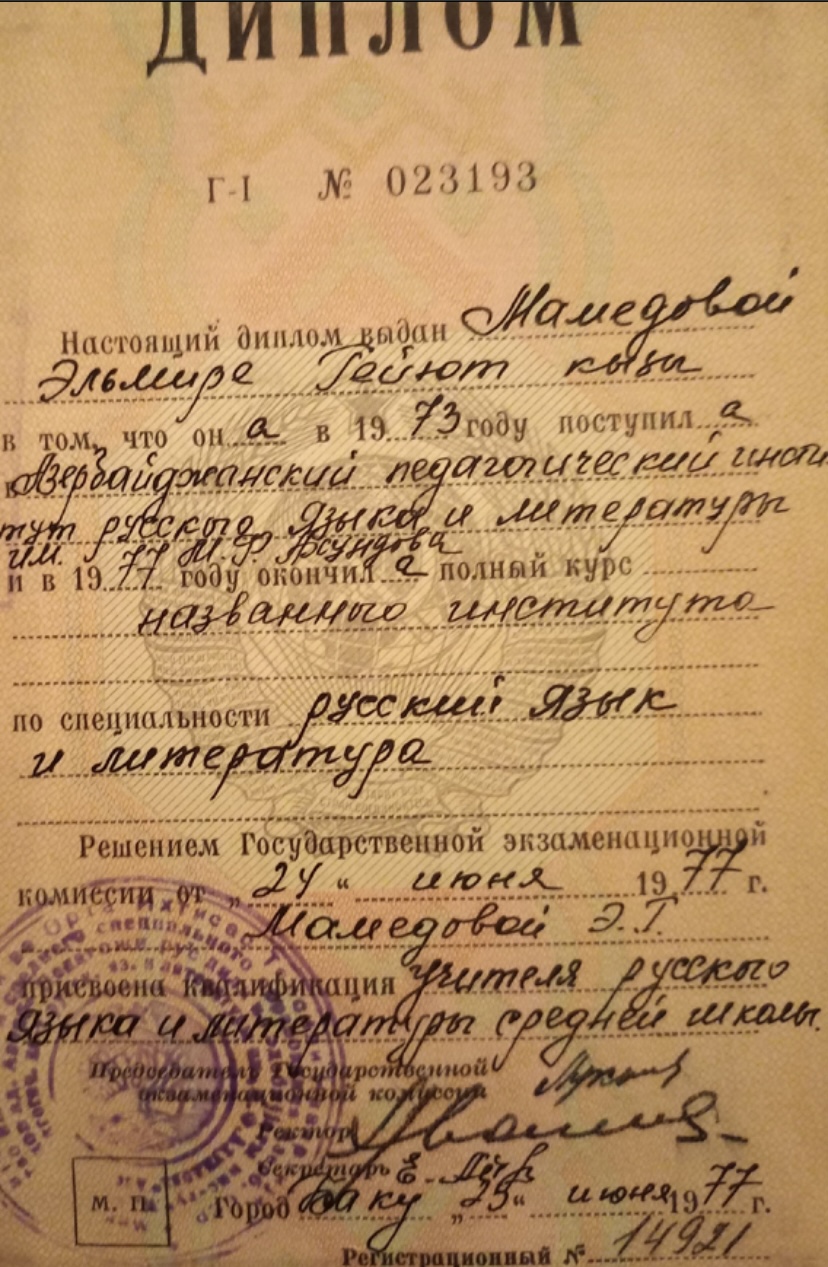 ДИПЛОМ
Г-I № 023193
Настоящий диплом выдан Мамедовой
Эльмире Гейют кызы
в том, что он а в 1973 году поступил а
в Азербайджанский педагогический инсти
тут русского языка и литературы
им. М. Ф. Ахундова
и в 1977 году окончил а полный курс
названного института
по специальности русский язык
и литература
Решением Государственной экзаменационной
комиссии от „24“ июня 1977 г.
Мамедовой Э.Г.
присвоена квалификация учителя русского
языка и литературы средней школы.
Председатель Государственной
экзаменационной комиссии
Ректор
Секретарь
М. П.
Город Баку „25“ июня 1977 г.
Регистрационный № 14921